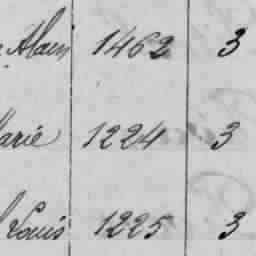 Alain 1462 3
Marie 1224 3
Louis 1225 3